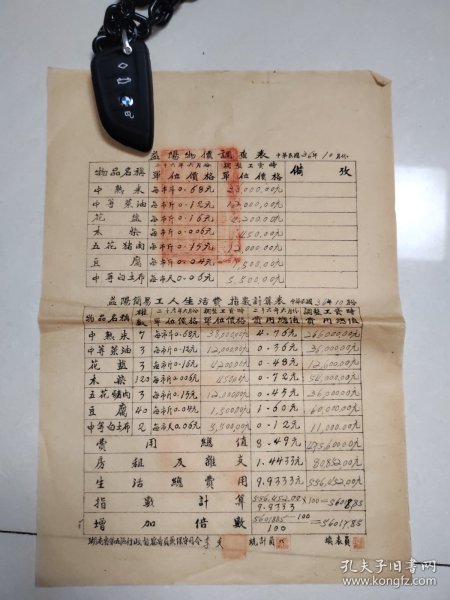 益陽物價調查表 中華民國36年10月份
物品名稱 二十六年六月份單位價格 調整工資時單位價格 備攷
中熟米 每市斗0.68元 38,000.00元
中等菜油 每市斤0.12元 12,000.00元
花鹽 每市斤0.16元 4,200.00元
木柴 每市斤0.006元 450.00元
五花猪肉 每市斤0.15元 12,000.00元
豆腐 每市斤0.04元 1,500.00元
中等白土布 每市尺0.06元 5,500.00元
益陽簡易工人生活費指數計算表 中華民國36年10月份
物品名稱 二十六年六月份單位價格 調整工資時單位價格 二十六年六月份費用總值 調整工資時費用總值
中熟米 7 每市斗0.68元 38,000.00元 4.76元 266,000.00元
中等菜油 3 每市斤0.12元 12,000.00元 0.36元 36,000.00元
花鹽 3 每市斤0.16元 4,200.00元 0.48元 12,600.00元
木柴 120 每市斤0.006元 450.00元 0.72元 54,000.00元
五花猪肉 3 每市斤0.15元 12,000.00元 0.45元 36,000.00元
豆腐 40 每市斤0.04元 1,500.00元 1.60元 60,000.00元
中等白土布 2 每市尺0.06元 5,500.00元 0.12元 11,000.00元
費用總值 8.49元 475,600.00元
房租及雜支 1.4433元 80,852.00元
生活總費用 9.9333元 556,452.00元
指數計算 556,452.00/9.9333×100=5601885
增加倍數 5601885-100/100=56017.85
統計員 填表員
孔夫子旧书网